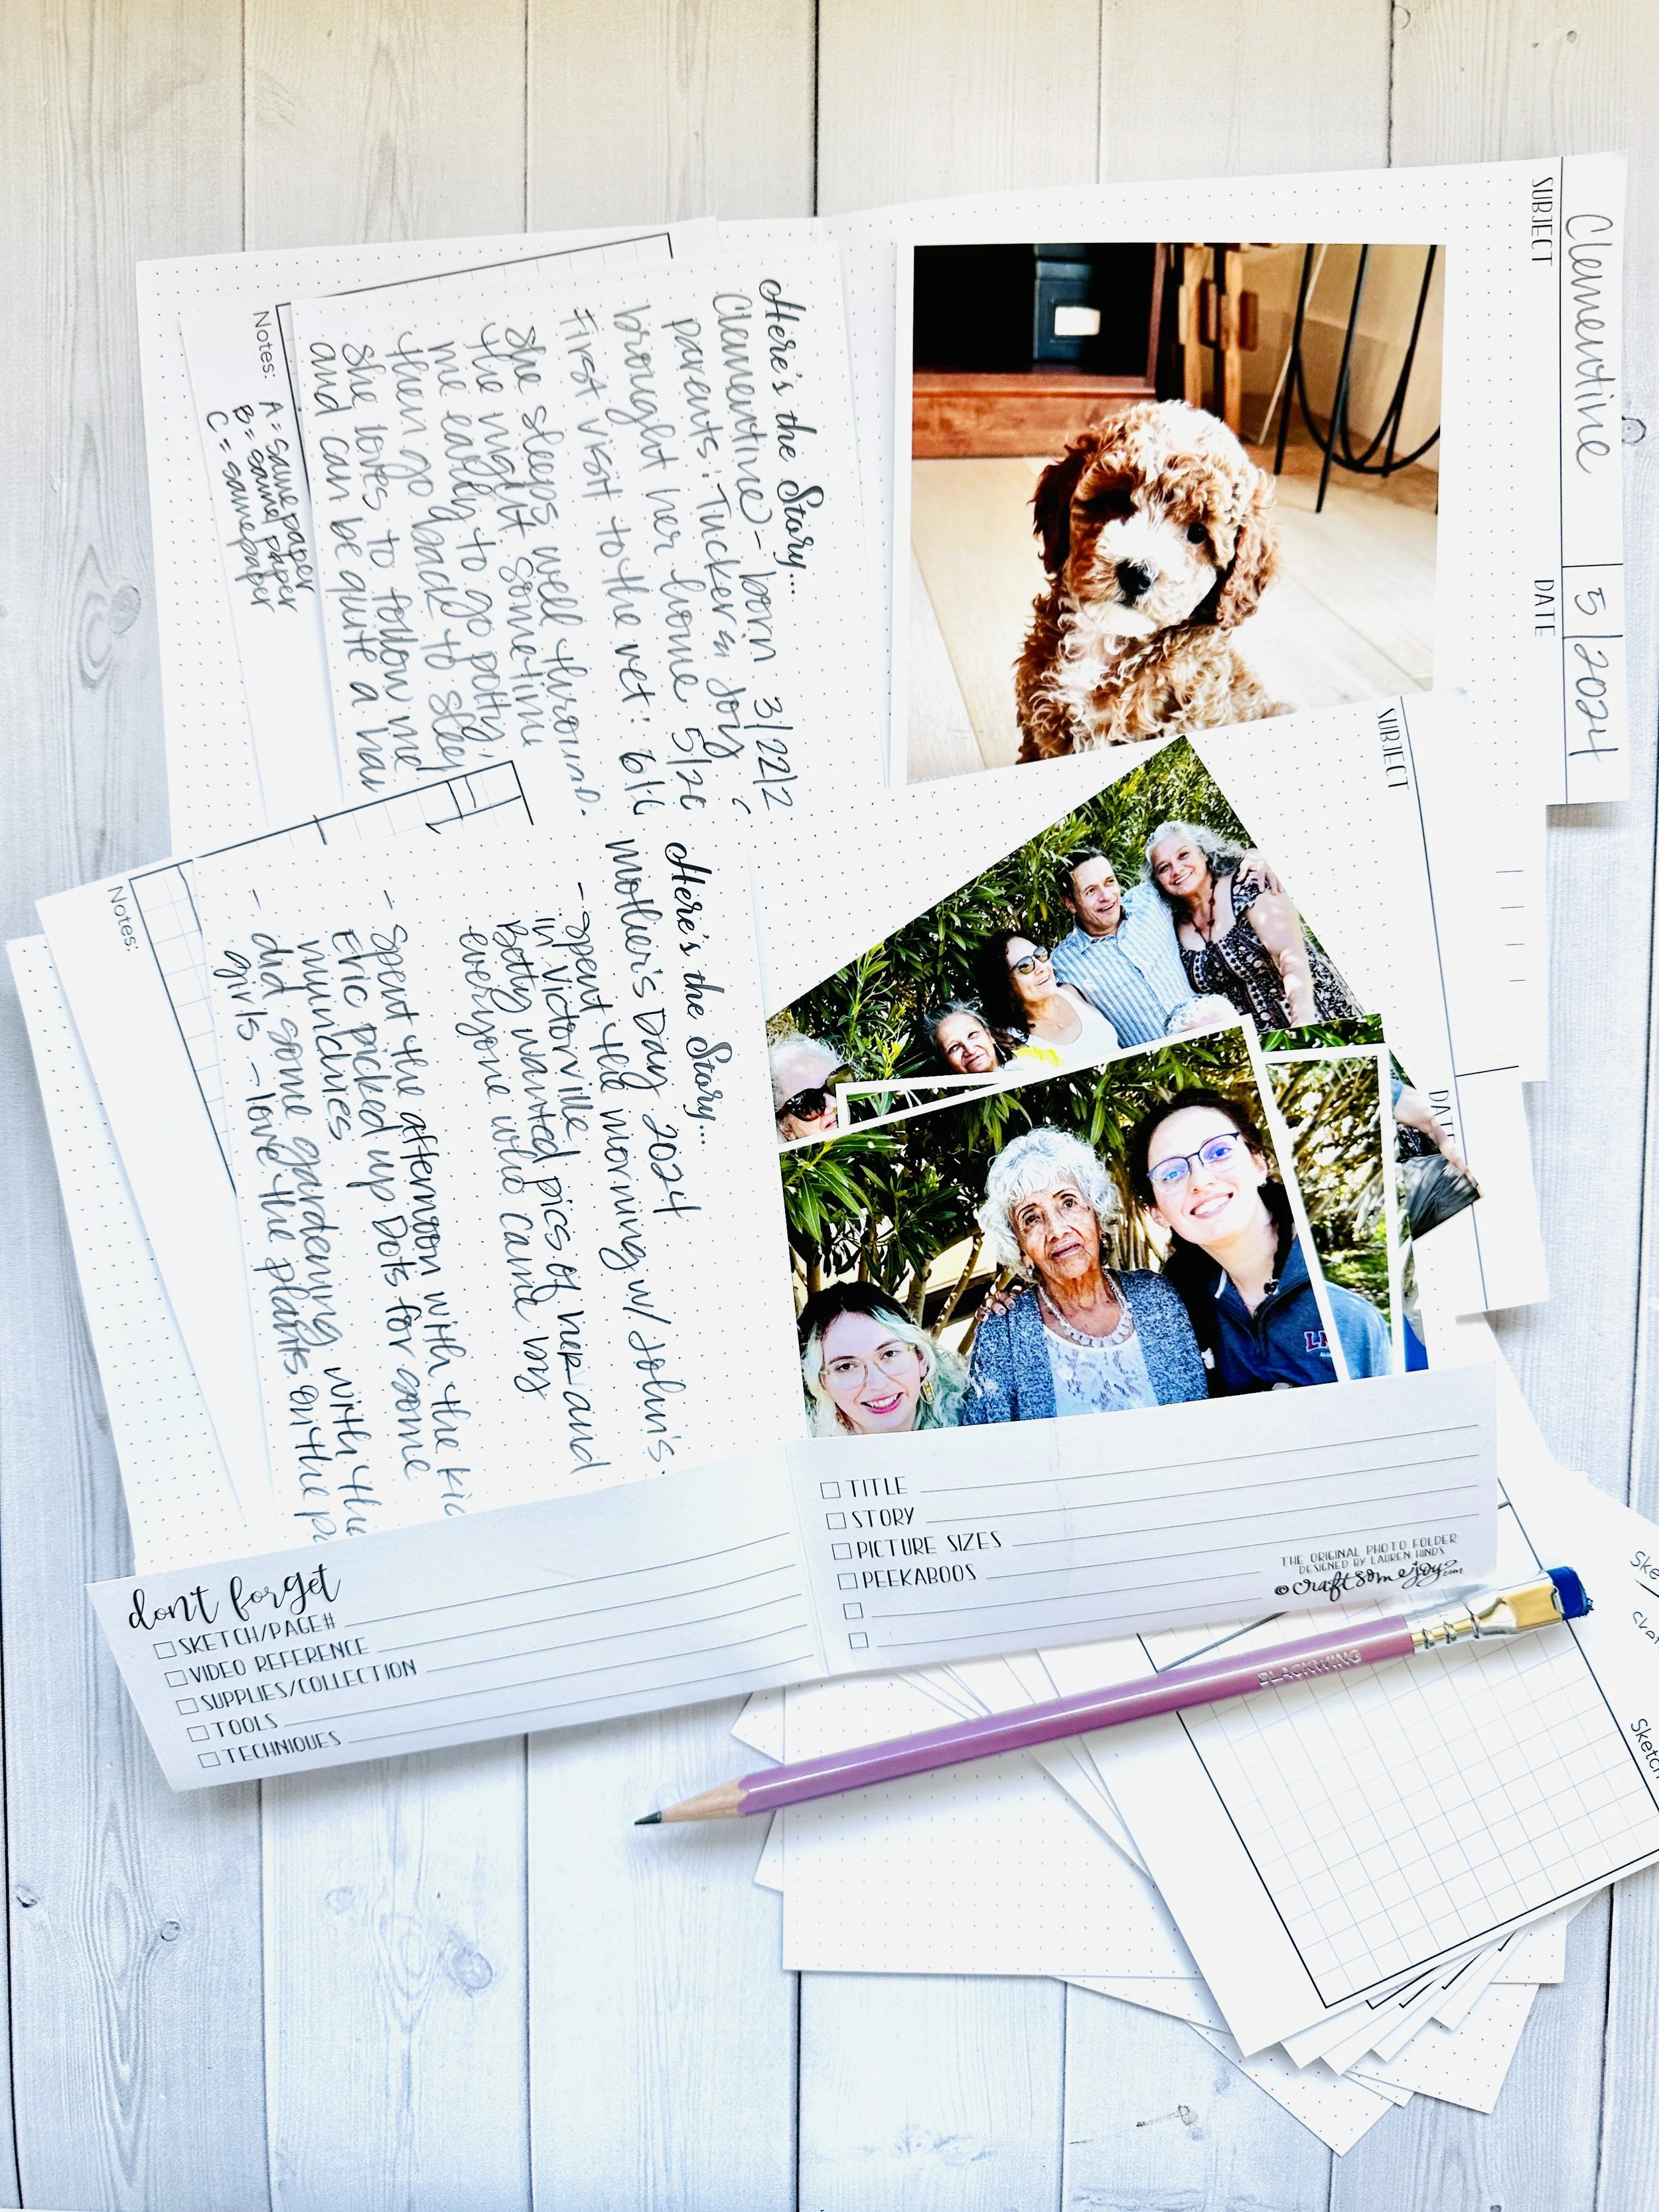 Clementine
5/2024
SUBJECT
DATE
Here's the Story...
Clementine - born 3/22/2
parents: Tucker & Joy
brought her home 5/20
First visit to the vet: 6/6
She sleeps well through.
the night sometime
me early to go potty,
then go back to sleep
She loves to follow me
and can be quite a han
Notes:
A = same paper
B = same paper
C = same paper
SUBJECT
DATE
Here's the Story...
Mother's Day 2024
- Spent the morning w/ John's.
in Victorville.
Betty wanted pics of her and
everyone who came by
- Spent the afternoon with the kid
Eric picked up Dots for some
munchies
- did some gardening with the
girls - love the plants on the pa
Notes:
don't forget
SKETCH/PAGE#
VIDEO REFERENCE
SUPPLIES/COLLECTION
TOOLS
TECHNIQUES
TITLE
STORY
PICTURE SIZES
PEEKABOOS
THE ORIGINAL PHOTO FOLDER
DESIGNED BY LAUREN HINDS
© craftsomejoy.com
BLACKWING
Sketch